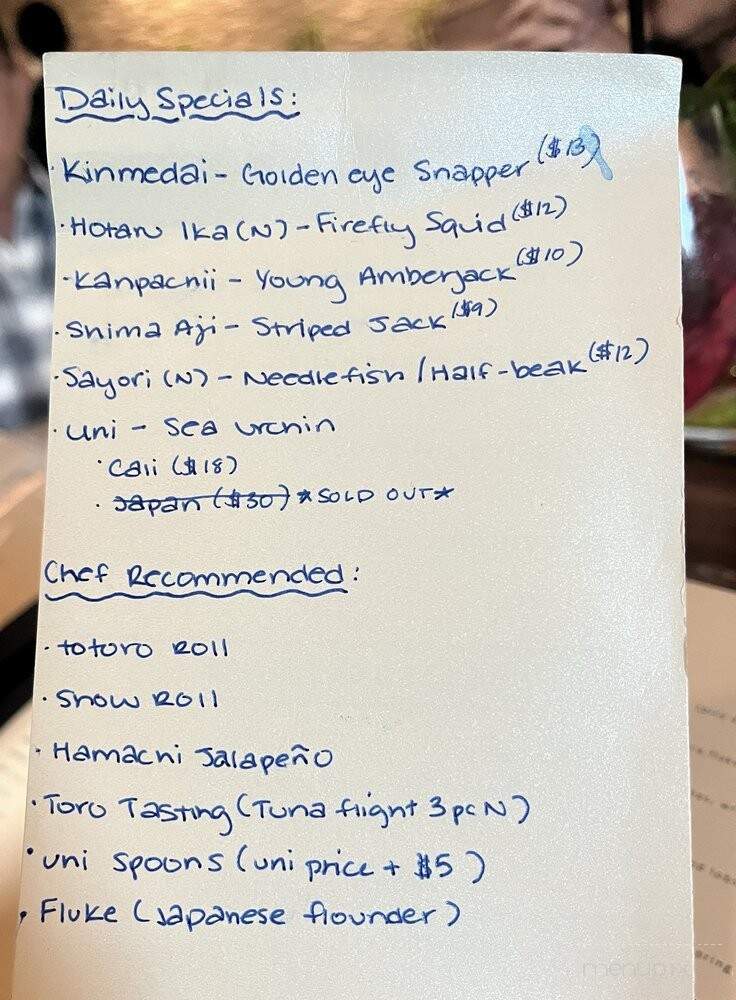 Daily Specials:
Kinmedai - Golden eye Snapper ($13)
· Hotaru Ika (N) - Firefly Squid ($12)
· Kanpachii - Young Amberjack ($10)
· Shima Aji - Striped Jack ($9)
· Sayori (N) - Needlefish / Half-beak ($12)
· Uni - Sea urchin
· Cali ($18)
· Japan ($30) *SOLD OUT*
Chef Recommended:
· totoro Roll
· Snow Roll
· Hamachi Jalapeño
· Toro Tasting (Tuna flight 3pc N)
· uni spoons (uni price + $5)
· Fluke (Japanese flounder)
menupix